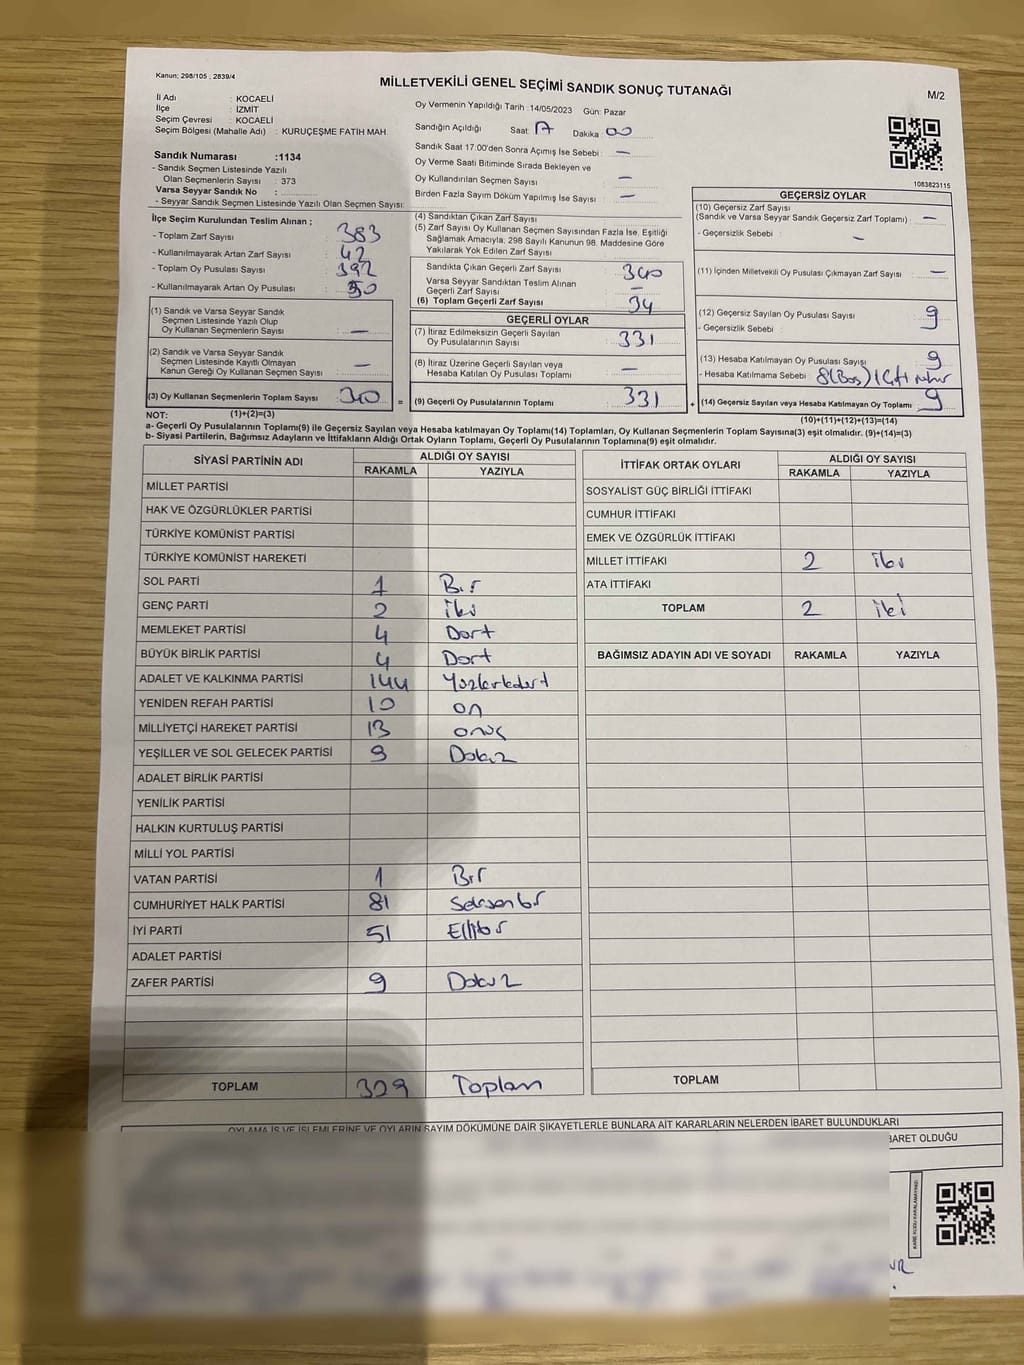 Kanun; 298/105 ; 2839/4
MİLLETVEKİLİ GENEL SEÇİMİ SANDIK SONUÇ TUTANAĞI
M/2
İl Adı : KOCAELİ
İlçe : İZMİT
Seçim Çevresi : KOCAELİ
Seçim Bölgesi (Mahalle Adı) : KURUÇEŞME FATİH MAH.
Sandık Numarası :1134
- Sandık Seçmen Listesinde Yazılı
Olan Seçmenlerin Sayısı : 373
Varsa Seyyar Sandık No :
- Seyyar Sandık Seçmen Listesinde Yazılı Olan Seçmen Sayısı:
Oy Vermenin Yapıldığı Tarih :14/05/2023 Gün: Pazar
Sandığın Açıldığı Saat: Dakika : 00
Sandık Saat 17:00'den Sonra Açımış İse Sebebi : —
Oy Verme Saati Bitiminde Sırada Bekleyen ve
Oy Kullandırılan Seçmen Sayısı : —
Birden Fazla Sayım Döküm Yapılmış İse Sayısı : —
1083823115
İlçe Seçim Kurulundan Teslim Alınan ;
- Toplam Zarf Sayısı : 383
- Kullanılmayarak Artan Zarf Sayısı : 42
- Toplam Oy Pusulası Sayısı : 392
- Kullanılmayarak Artan Oy Pusulası : 50
(1) Sandık ve Varsa Seyyar Sandık
Seçmen Listesinde Yazılı Olup
Oy Kullanan Seçmenlerin Sayısı : —
(2) Sandık ve Varsa Seyyar Sandık
Seçmen Listesinde Kayıtlı Olmayan
Kanun Gereği Oy Kullanan Seçmen Sayısı : —
(3) Oy Kullanan Seçmenlerin Toplam Sayısı : 340
(1)+(2)=(3)
(4) Sandıktan Çıkan Zarf Sayısı
(5) Zarf Sayısı Oy Kullanan Seçmen Sayısından Fazla İse, Eşitliği
Sağlamak Amacıyla, 298 Sayılı Kanunun 98. Maddesine Göre
Yakılarak Yok Edilen Zarf Sayısı
Sandıkta Çıkan Geçerli Zarf Sayısı : 340
Varsa Seyyar Sandıktan Teslim Alınan
Geçerli Zarf Sayısı : —
(6) Toplam Geçerli Zarf Sayısı : 34
GEÇERLİ OYLAR
(7) İtiraz Edilmeksizin Geçerli Sayılan
Oy Pusulalarının Sayısı : 331
(8) İtiraz Üzerine Geçerli Sayılan veya
Hesaba Katılan Oy Pusulası Toplamı : —
= (9) Geçerli Oy Pusulalarının Toplamı : 331
GEÇERSİZ OYLAR
(10) Geçersiz Zarf Sayısı
(Sandık ve Varsa Seyyar Sandık Geçersiz Zarf Toplamı) : —
- Geçersizlik Sebebi : —
(11) İçinden Milletvekili Oy Pusulası Çıkmayan Zarf Sayısı : —
(12) Geçersiz Sayılan Oy Pusulası Sayısı : 9
- Geçersizlik Sebebi :
(13) Hesaba Katılmayan Oy Pusulası Sayısı : 9
- Hesaba Katılmama Sebebi : 8(Boş) 1 Çift mühür
+ (14) Geçersiz Sayılan veya Hesaba Katılmayan Oy Toplamı : 9
(10)+(11)+(12)+(13)=(14)
NOT:
a- Geçerli Oy Pusulalarının Toplamı(9) ile Geçersiz Sayılan veya Hesaba katılmayan Oy Toplamı(14) Toplamları, Oy Kullanan Seçmenlerin Toplam Sayısına(3) eşit olmalıdır. (9)+(14)=(3)
b- Siyasi Partilerin, Bağımsız Adayların ve İttifakların Aldığı Ortak Oyların Toplamı, Geçerli Oy Pusulalarının Toplamına(9) eşit olmalıdır.
SİYASİ PARTİNİN ADI ALDIĞI OY SAYISI
RAKAMLA YAZIYLA
MİLLET PARTİSİ
HAK VE ÖZGÜRLÜKLER PARTİSİ
TÜRKİYE KOMÜNİST PARTİSİ
TÜRKİYE KOMÜNİST HAREKETİ
SOL PARTİ 1 Bir
GENÇ PARTİ 2 iki
MEMLEKET PARTİSİ 4 Dort
BÜYÜK BİRLİK PARTİSİ 4 Dort
ADALET VE KALKINMA PARTİSİ 144 Yüzkırkdört
YENİDEN REFAH PARTİSİ 10 on
MİLLİYETÇİ HAREKET PARTİSİ 13 onüç
YEŞİLLER VE SOL GELECEK PARTİSİ 9 Dokuz
ADALET BİRLİK PARTİSİ
YENİLİK PARTİSİ
HALKIN KURTULUŞ PARTİSİ
MİLLİ YOL PARTİSİ
VATAN PARTİSİ 1 Bir
CUMHURİYET HALK PARTİSİ 81 Seksenbir
İYİ PARTİ 51 Ellibir
ADALET PARTİSİ
ZAFER PARTİSİ 9 Dokuz
TOPLAM 329 Toplam
İTTİFAK ORTAK OYLARI ALDIĞI OY SAYISI
RAKAMLA YAZIYLA
SOSYALİST GÜÇ BİRLİĞİ İTTİFAKI
CUMHUR İTTİFAKI
EMEK VE ÖZGÜRLÜK İTTİFAKI
MİLLET İTTİFAKI 2 iki
ATA İTTİFAKI
TOPLAM 2 iki
BAĞIMSIZ ADAYIN ADI VE SOYADI RAKAMLA YAZIYLA
TOPLAM
OYLAMA İŞ VE İŞLEMLERİNE VE OYLARIN SAYIM DÖKÜMÜNE DAİR ŞİKAYETLERLE BUNLARA AİT KARARLARIN NELERDEN İBARET BULUNDUKLARI
BARET OLDUĞU
KARE KODU KARALAMAYINIZ!